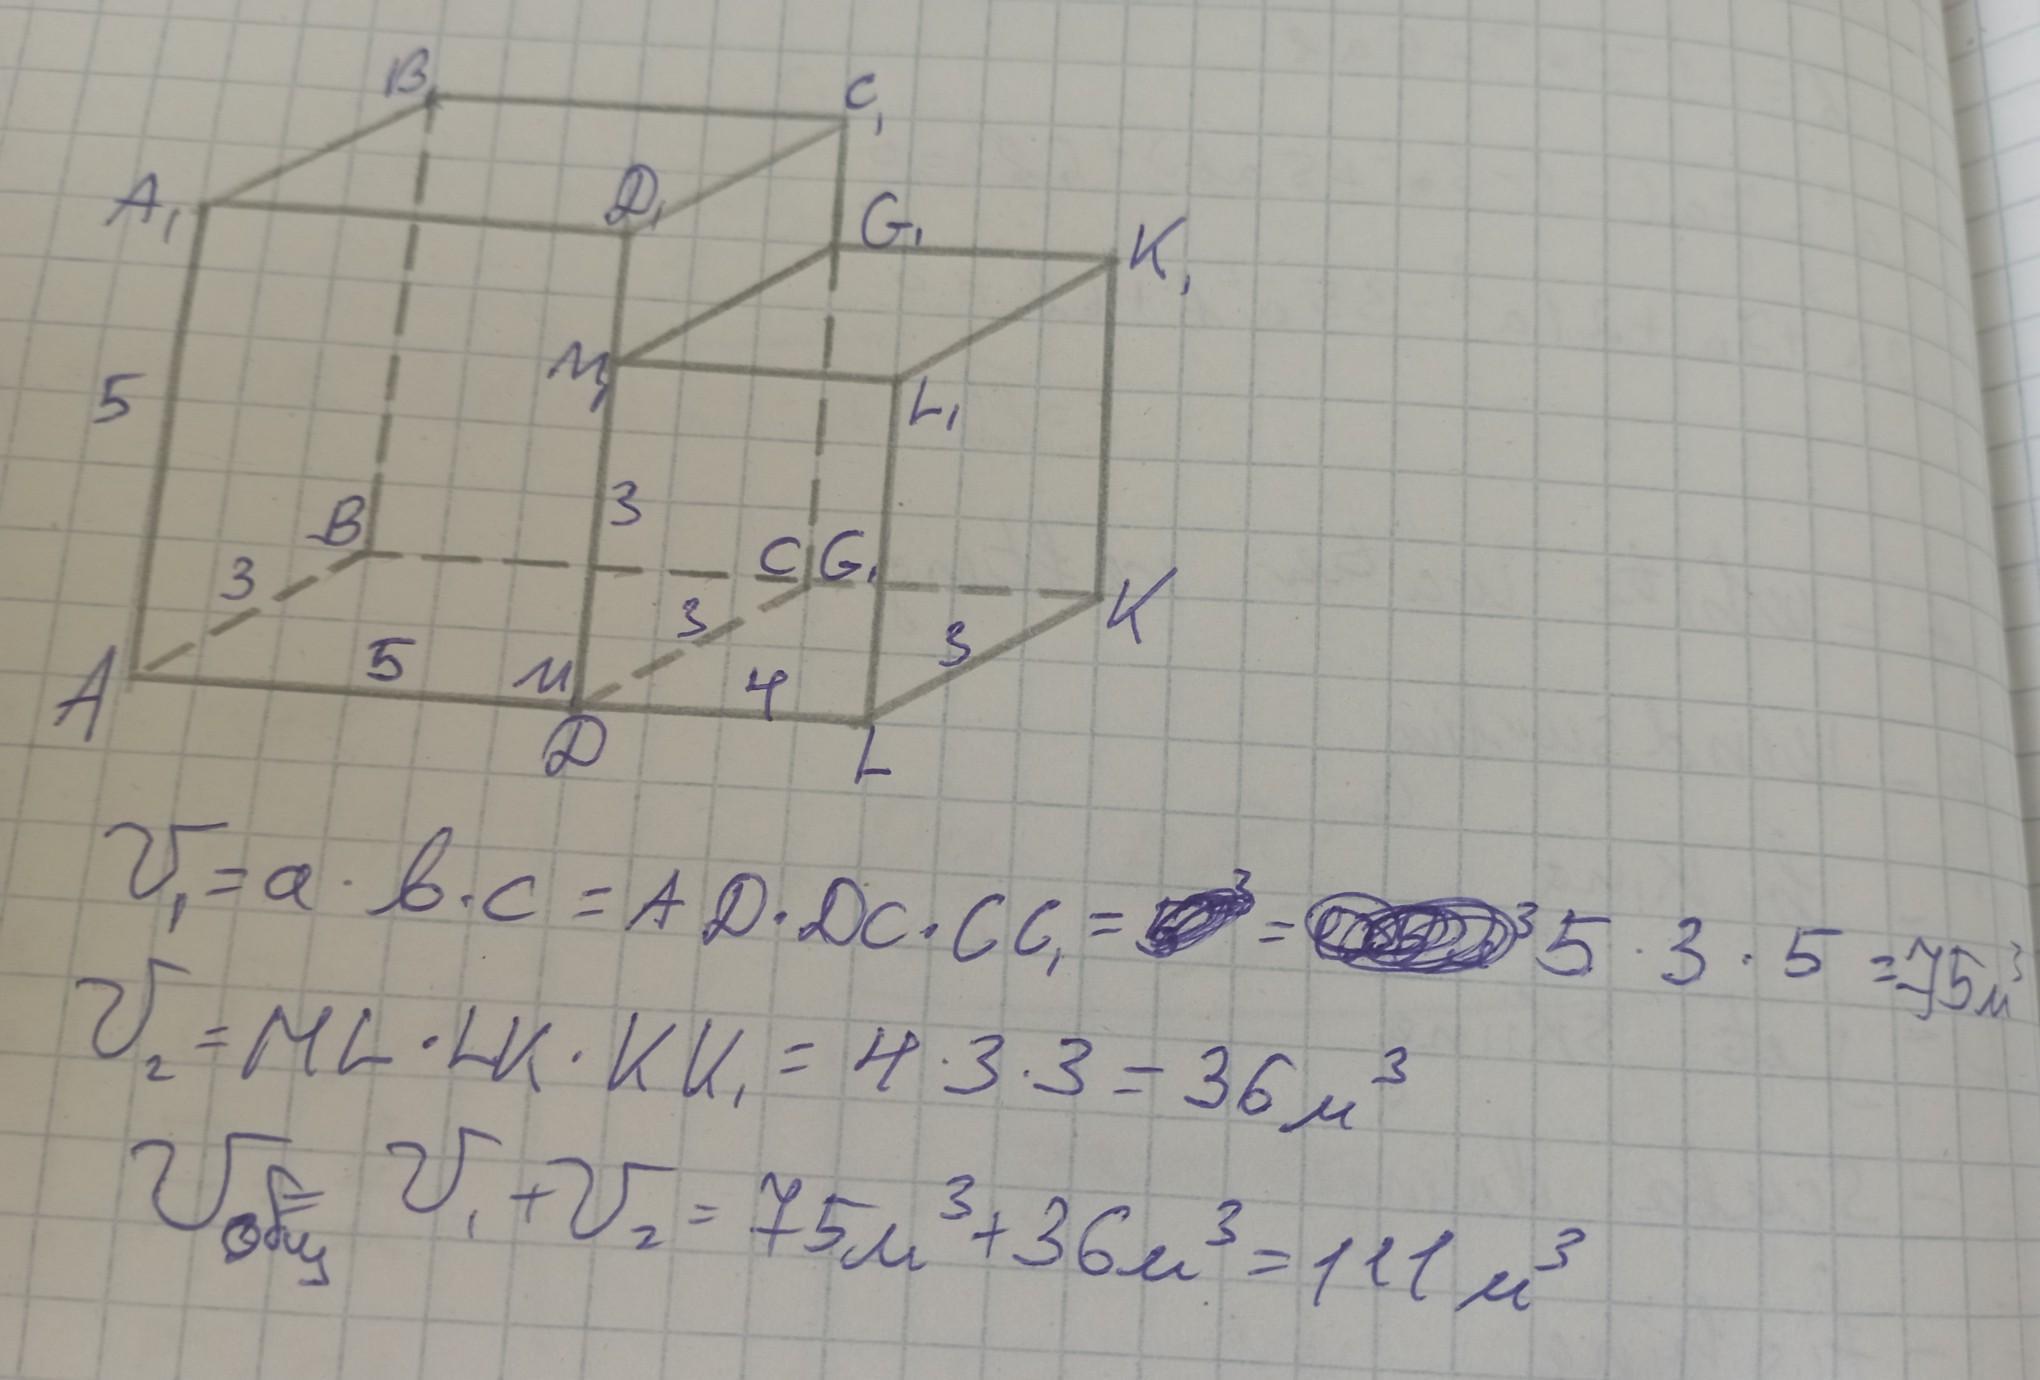 B₁
C₁
A₁
D₁
G₁
K₁
M₁
L₁
5
3
B
C G₁
3
3
3
K
A
5
M
4
D
L
V₁ = a · b · c = AD · DC · CC₁ = ³ = ³ 5 · 3 · 5 = 75 м³
V₂ = ML · LK · KK₁ = 4 · 3 · 3 = 36 м³
Vобщ = V₁ + V₂ = 75 м³ + 36 м³ = 111 м³